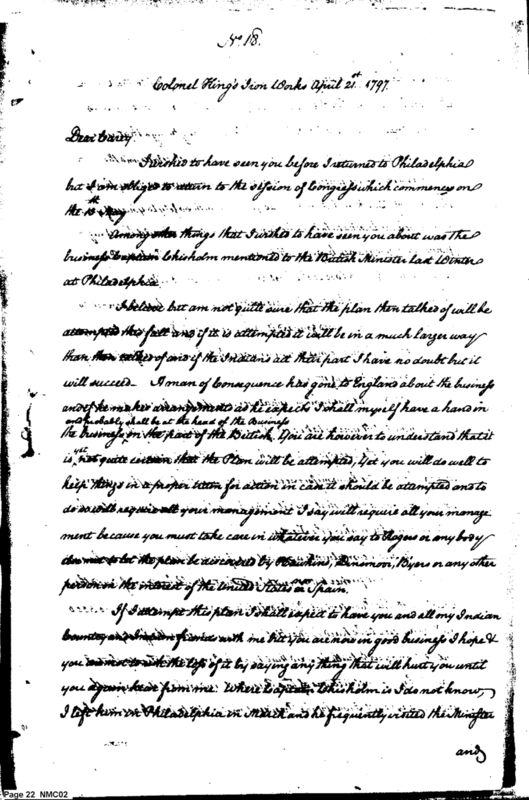 No 18.
Colonel King's Iron Works April 21st 1797.
Dear Carey.
I wished to have seen you before I returned to Philadelphia
but I am obliged to return to the session of Congress which commences on
the 15th May
Among other things that I wished to have seen you about was the
business Captain Chisholm mentioned to the British Minister last Winter
at Philadelphia
I believe but am not quite sure that the plan then talked of will be
attempted this fall and if it is attempted it will be in a much larger way
than then talked of and if the Indians act their part I have no doubt but it
will succeed. A man of Consequence has gone to England about the business
and if he makes arrangements as he expects I shall myself have a hand in
and probably shall be at the head of the Business
the business on the part of the British. You are however to understand that it
is yet not quite certain that the Plan will be attempted, Yet you will do well to
keep things in a proper train for action in case it should be attempted and to
do so will require all your management I say will require all your manage
ment because you must take care in whatever you say to Rogers or any body
else not to let the plan be discovered by Hawkins, Dinsmoor, Byers or any other
person in the interest of the United States or Spain.
If I attempt this plan I shall expect to have you and all my Indian
Country and Indian friends with me but you are now in good business I hope &
you are not to risk the loss of it by saying any thing that will hurt you until
you again hear from me. Where Captain Chisholm is I do not know,
I left him in Philadelphia in March and he frequently visited the Minister
and
Page 22 NMC02